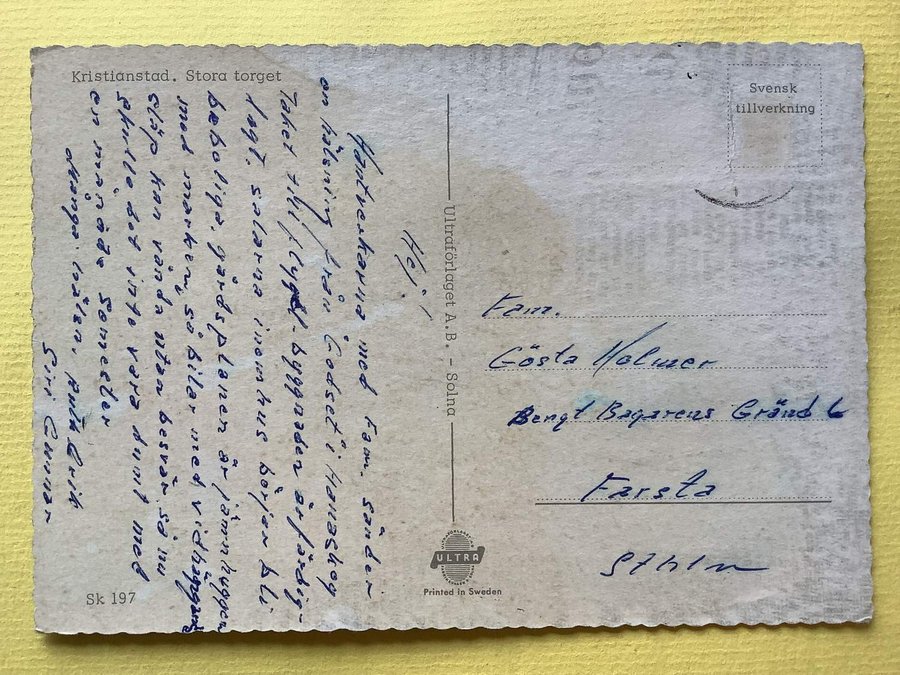 Kristianstad. Stora torget
Hej!
Hantverkarna med fam. sänder
en hälsning från Godset i Hanaskog
Taket till byggnaden är färdig-
lagt. salarna inomhus börjar bli
beboliga, gårdsplanen är jämnhyggen
med marken, så bilar med vidhängande
släp kan vända utan besvär så nu
skulle det inte vara dumt med
en månads semester
Många hälsn. Erik
Siri Gunnar
Sk 197
Ultraförlaget A.B. - Solna
ULTRA
Printed in Sweden
Svensk
tillverkning
Fam.
Gösta Holmer
Bengt Bagarens Gränd 6
Farsta
Sthlm